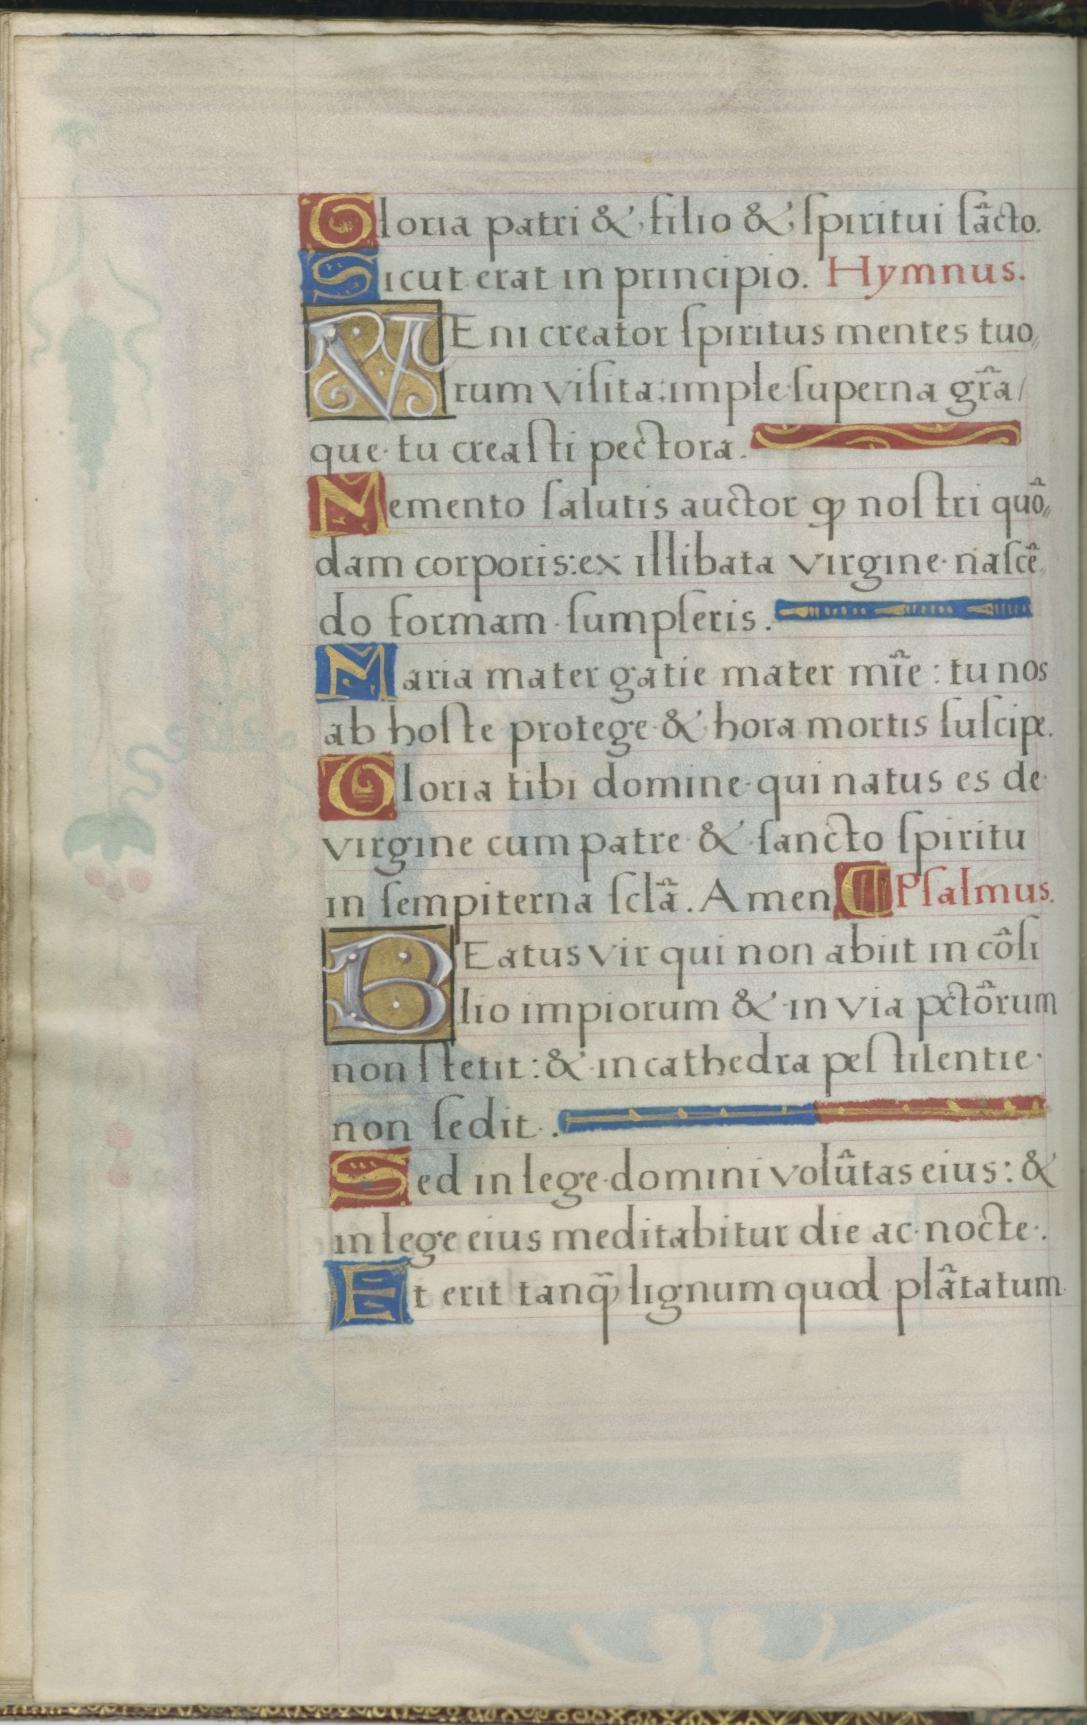 Gloria patri & filio & spiritui sãcto.
Sicut erat in principio. Hymnus.
VEni creator spiritus mentes tuo,,
rum visita: imple superna gr̃a/
que tu creasti pectora.
Memento salutis auctor ꝙ nostri quõ,,
dam corporis: ex illibata virgine nascẽ,
do formam sumpseris.
Maria mater gatie mater mr̃ie: tu nos
ab hoste protege & hora mortis suscipe.
Gloria tibi domine qui natus es de
virgine cum patre & sancto spiritu
in sempiterna sclã. Amen ¶ Psalmus.
BEatus vir qui non abiit in cõsi
lio impiorum & in via pctõrum
non stetit: & in cathedra pestilentie
non sedit.
Sed in lege domini volũtas eius: &
in lege eius meditabitur die ac nocte.
Et erit tanq̃ lignum quod plãtatum